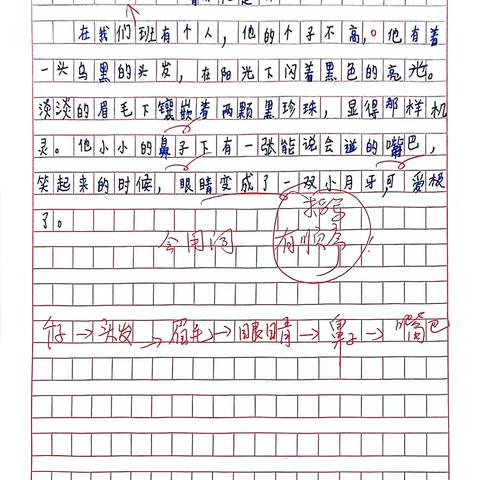 在我们班有个人，他的个子不高，。他有着
一头乌黑的头发，在阳光下闪着黑色的亮光。
淡淡的眉毛下镶嵌着两颗黑珍珠，显得那样机
灵。他小小的鼻子下有一张能说会道的嘴巴，
笑起来的时候，眼睛变成了一双小月牙，可爱极
了。
会用词 有顺序！
个子→头发→眉毛→眼睛→鼻子→嘴巴